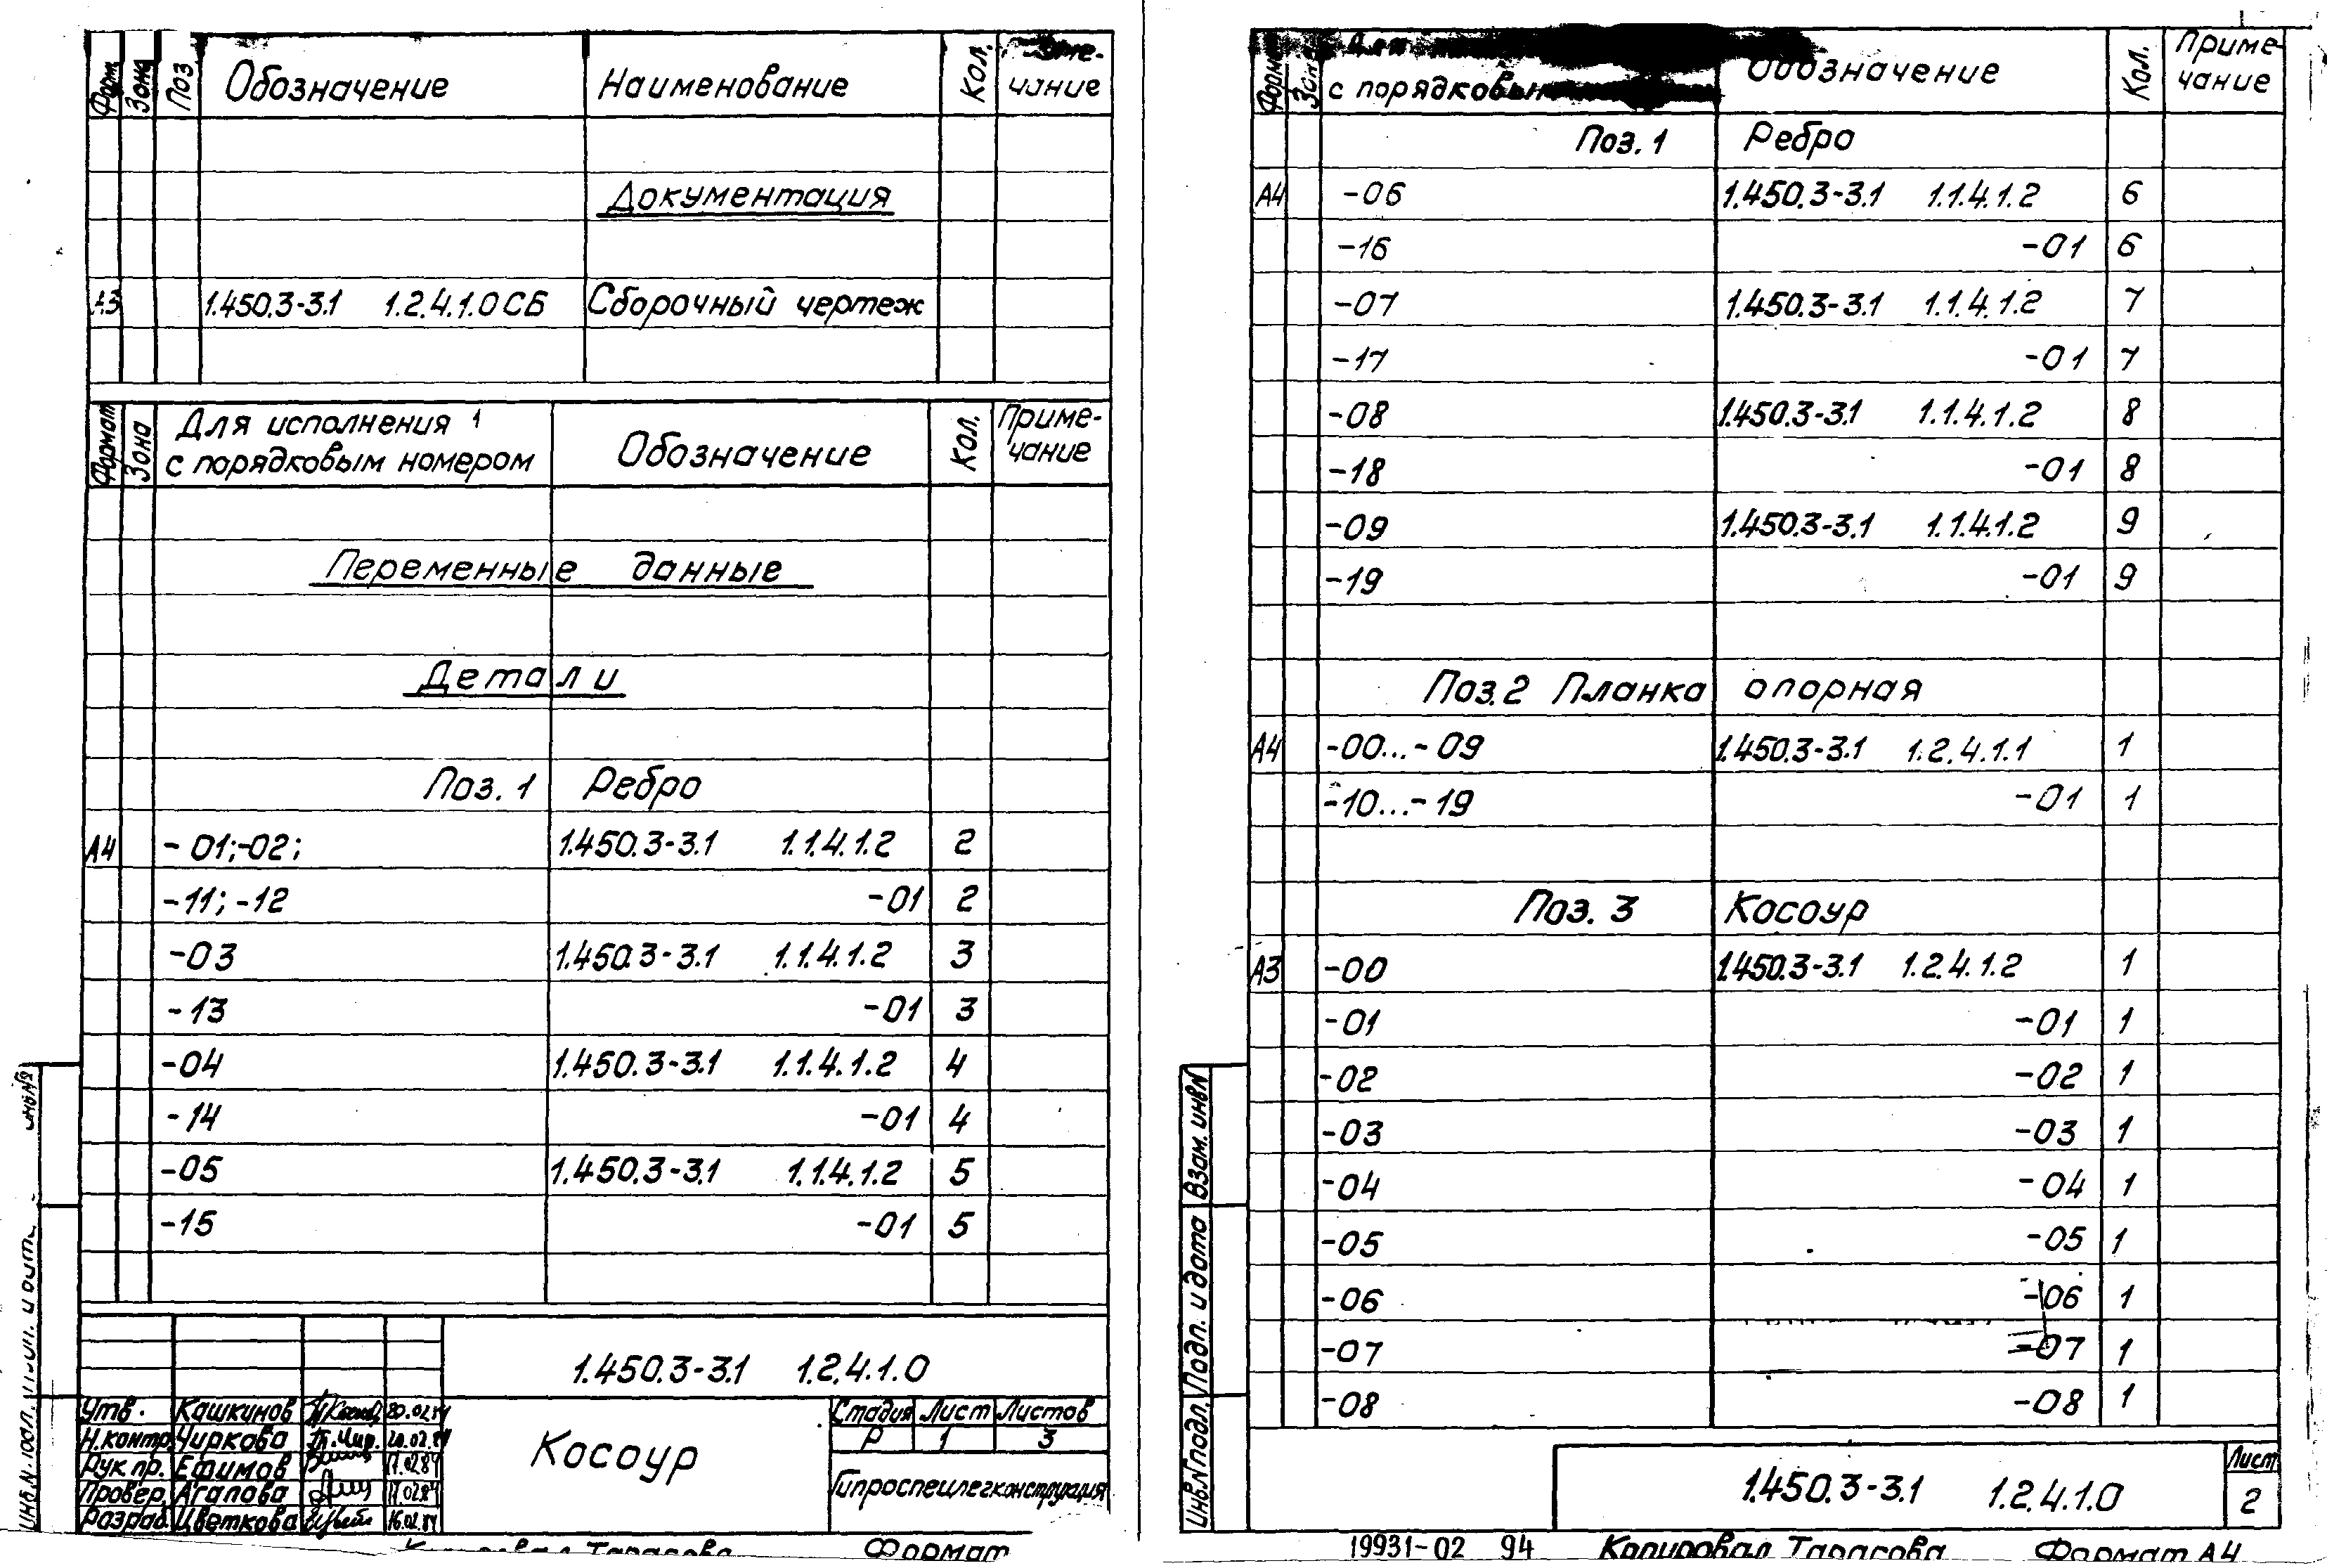 Форм. Зона Поз Обозначение Наименование Кол. чание
Документация
А3 1.450.3-3.1 1.2.4.1.0 СБ Сборочный чертеж
Формат Зона Для исполнения с порядковым номером Обозначение Кол. Приме-чание
Переменные данные
Детали
Поз. 1 Ребро
А4 -01;-02; 1.450.3-3.1 1.1.4.1.2 2
-11; -12 -01 2
-03 1.450.3-3.1 1.1.4.1.2 3
-13 -01 3
-04 1.450.3-3.1 1.1.4.1.2 4
-14 -01 4
-05 1.450.3-3.1 1.1.4.1.2 5
-15 -01 5
1.450.3-3.1 1.2.4.1.0
Утв. Кашкинов 20.02.84
Н.контр. Чиркова 20.02.84
Рук.пр. Ефимов 17.02.84
Провер. Агапова 17.02.84
Разраб. Цветкова 16.02.84
Косоур
Стадия Лист Листов
Р 1 3
Гипроспецлегконструкция
Копировал Тарасова Формат
Для
с порядковым Обозначение Кол. Приме-чание
Поз. 1 Ребро
А4 -06 1.450.3-3.1 1.1.4.1.2 6
-16 -01 6
-07 1.450.3-3.1 1.1.4.1.2 7
-17 -01 7
-08 1.450.3-3.1 1.1.4.1.2 8
-18 -01 8
-09 1.450.3-3.1 1.1.4.1.2 9
-19 -01 9
Поз.2 Планка опорная
А4 -00...-09 1.450.3-3.1 1.2.4.1.1 1
-10...-19 -01 1
Поз. 3 Косоур
А3 -00 1.450.3-3.1 1.2.4.1.2 1
-01 -01 1
-02 -02 1
-03 -03 1
-04 -04 1
-05 -05 1
-06 -06 1
-07 -07 1
-08 -08 1
Инв.N подл. Подп. и дата Взам. инв.N
1.450.3-3.1 1.2.4.1.0
Лист
2
19931-02 94 Копировал Тарасова Формат А4